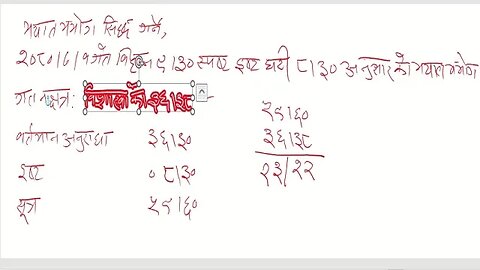 भयात भभोग सिद्ध गर्ने,
२०८०।८।१ गते बिहान ९।३० स्पष्ट इष्ट घडी ८।३० अनुसारको भयात भभोग
गत नक्षत्र: विशाखाको ३६।३८ -
५९।६०
वर्तमान अनुराधा ३६।३० ३६।३८
इष्ट ०८।३० २३।२२
सूत्र ५९।६०